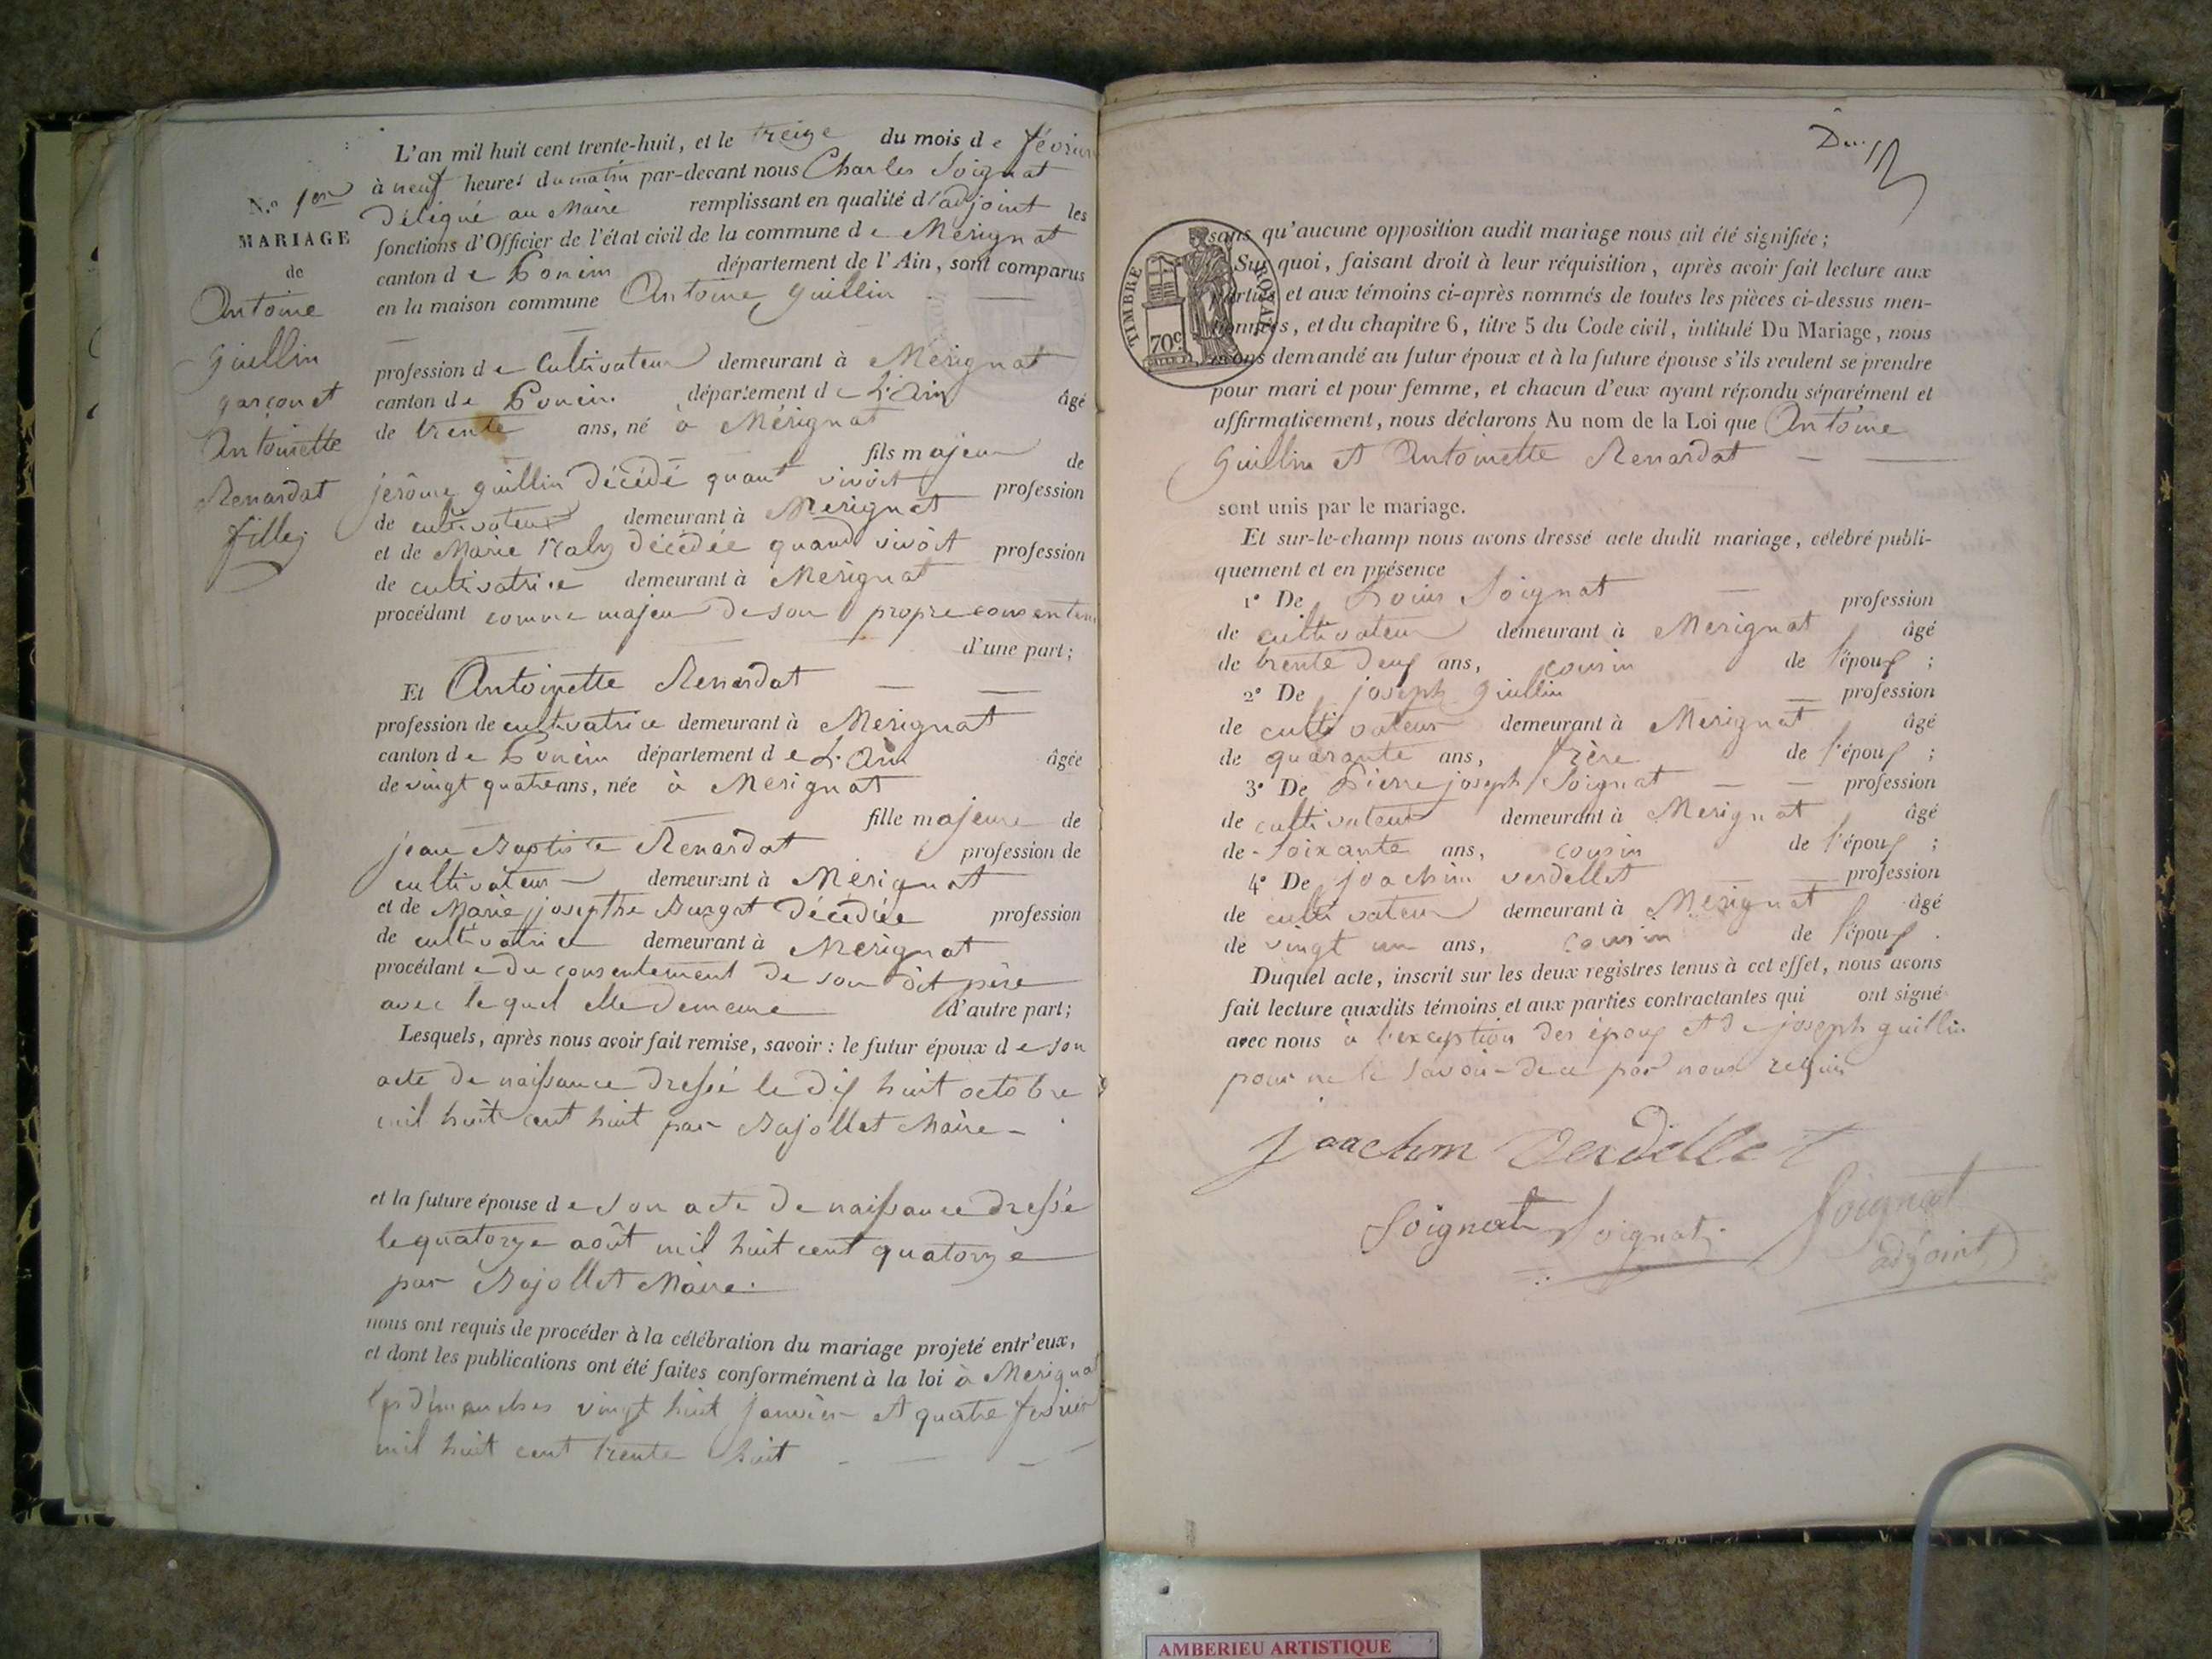 L'an mil huit cent trente-huit, et le treize du mois de février
à neuf heures du matin par-devant nous Charles Soignat
Délégué au Maire remplissant en qualité d'adjoint les
fonctions d'Officier de l'état civil de la commune de Mérignat
canton de Poncin département de l'Ain, sont comparus
en la maison commune Antoine Guillin
profession de Cultivateur demeurant à Mérignat
canton de Poncin département de L'Ain âgé
de trente ans, né à Mérignat
fils majeur de
jérôme guillin décédé quant vivoit profession
de cultivateur demeurant à Merignat
et de Marie décédée quand vivoit profession
de cultivatrice demeurant à Merignat
procédant comme majeur de son propre consentem
d'une part;
Et Antoinette Renardat
profession de cultivatrice demeurant à Merignat
canton de Poncin département de L'Ain âgée
de vingt quatre ans, née à Merignat
fille majeure de
jean Baptiste Renardat profession de
cultivateur demeurant à Mérignat
et de Marie josepthe Burgat décédée profession
de cultivatrice demeurant à Merignat
procédante du consentement de son dit père
avec lequel elle demeure d'autre part;
Lesquels, après nous avoir fait remise, savoir : le futur époux de son
acte de naissance dressé le dix huit octobre
mil huit cent huit par Bajollet Maire
et la future épouse de son acte de naissance dressé
le quatorze août mil huit cent quatorze
par Bajollet Maire.
nous ont requis de procéder à la célébration du mariage projeté entr'eux,
et dont les publications ont été faites conformément à la loi à Merignat
les dimanches vingt huit janvier et quatre fevrier
mil huit cent trente huit
N.º 1er
MARIAGE
de
Antoine
Guillin
garçon et
Antoinette
Renardat
fille
TIMBRE ROYAL
70c
sans qu'aucune opposition audit mariage nous ait été signifiée ;
Sur quoi, faisant droit à leur réquisition, après avoir fait lecture aux
parties et aux témoins ci-après nommés de toutes les pièces ci-dessus men-
tionnées, et du chapitre 6, titre 5 du Code civil, intitulé Du Mariage, nous
avons demandé au futur époux et à la future épouse s'ils veulent se prendre
pour mari et pour femme, et chacun d'eux ayant répondu séparément et
affirmativement, nous déclarons Au nom de la Loi que Antoine
Guillin et Antoinette Renardat
sont unis par le mariage.
Et sur-le-champ nous avons dressé acte dudit mariage, célébré publi-
quement et en présence
1º De Louis Soignat profession
de cultivateur demeurant à Merignat âgé
de trente deux ans, cousin de l'époux ;
2º De joseph Guillin profession
de cultivateur demeurant à Merignat âgé
de quarante ans, frère de l'époux ;
3º De Pierre joseph Soignat profession
de cultivateur demeurant à Merignat âgé
de soixante ans, cousin de l'époux ;
4º De joachim verdellet profession
de cultivateur demeurant à Merignat âgé
de vingt un ans, cousin de l'époux.
Duquel acte, inscrit sur les deux registres tenus à cet effet, nous avons
fait lecture auxdits témoins et aux parties contractantes qui ont signé
avec nous à l'exception des époux et de joseph guillin
pour ne le savoir de ce par nous requis
Joachim Verdellet
Soignat Soignat Soignat
adjoint
AMBERIEU ARTISTIQUE